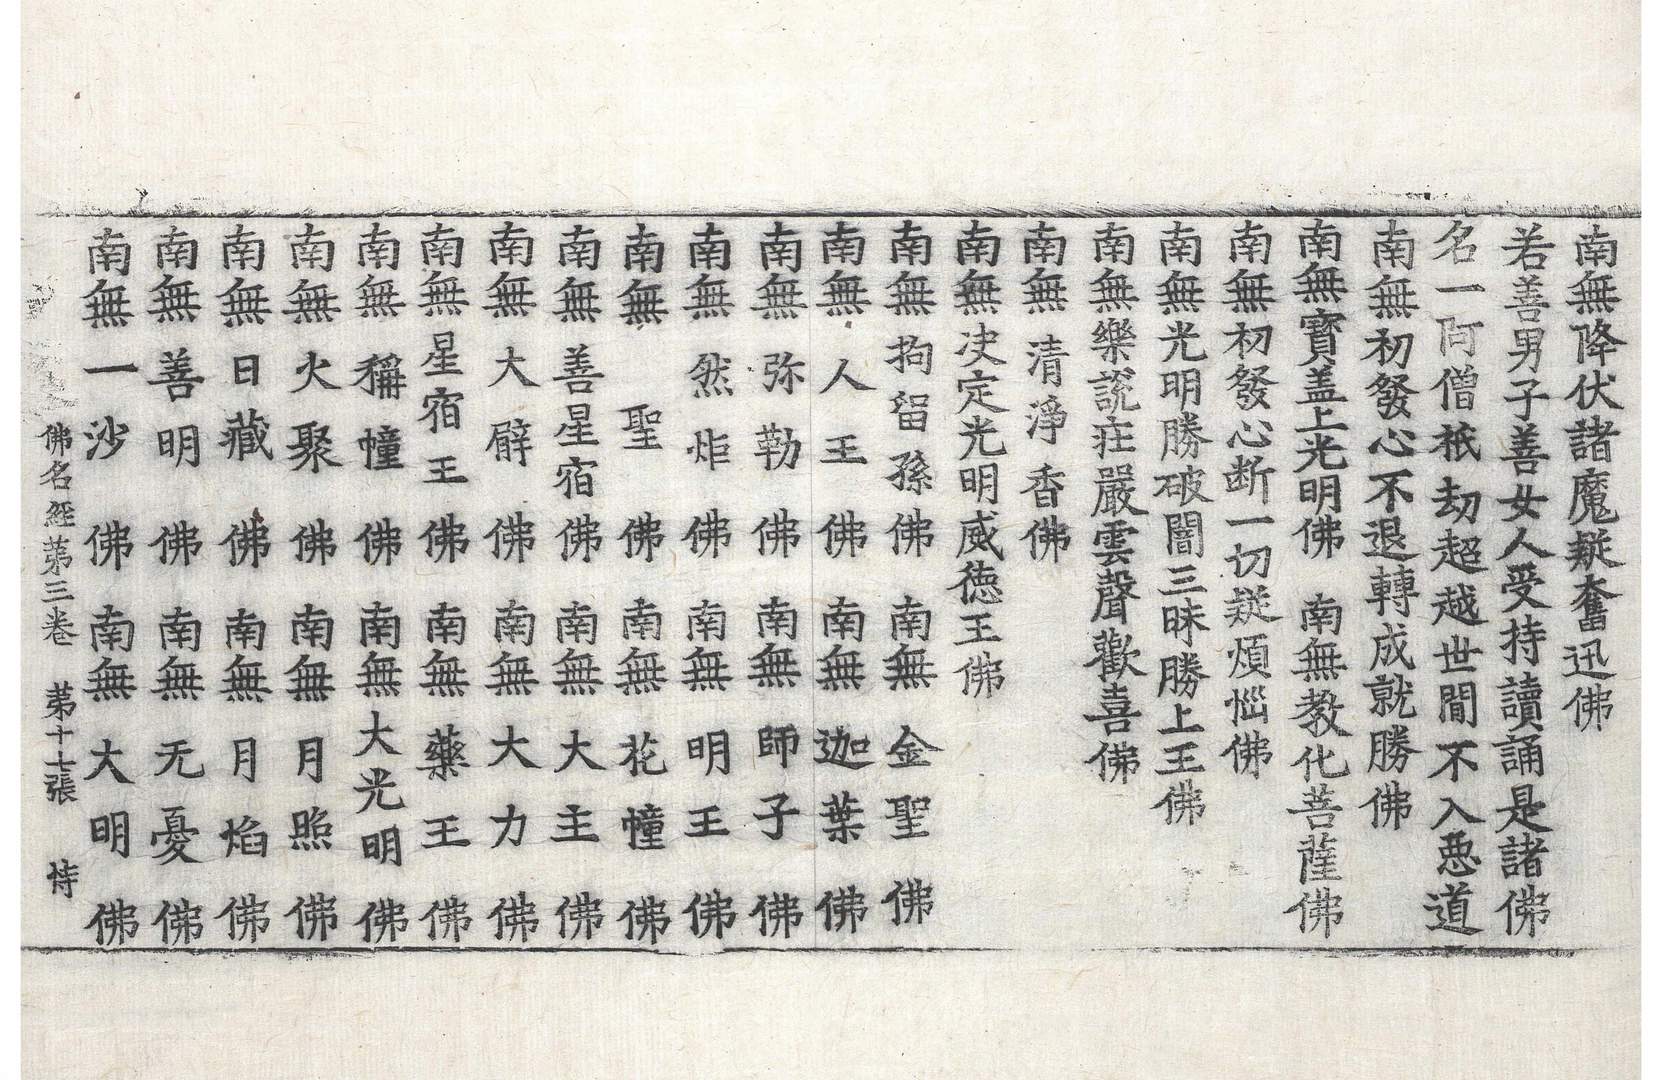 南無降伏諸魔疑奮迅佛
若善男子善女人受持讀誦是諸佛
名一阿僧祇劫超越世間不入惡道
南無初發心不退轉成就勝佛
南無寶盖上光明佛 南無教化菩薩佛
南無初發心断一切疑煩惱佛
南無光明勝破闇三昧勝上王佛
南無樂說莊嚴雲聲歡喜佛
南無清淨香佛
南無决定光明威德王佛
南無拘留孫佛 南無金聖佛
南無人王佛 南無迦葉佛
南無弥勒佛 南無師子佛
南無然炬佛 南無明王佛
南無聖佛 南無花幢佛
南無善星宿佛 南無大主佛
南無大臂佛 南無大力佛
南無星宿王佛 南無藥王佛
南無稱幢佛 南無大光明佛
南無火聚佛 南無月照佛
南無日藏佛 南無月焰佛
南無善明佛 南無无憂佛
南無一沙佛 南無大明佛
佛名經苐三卷 苐十七張 恃